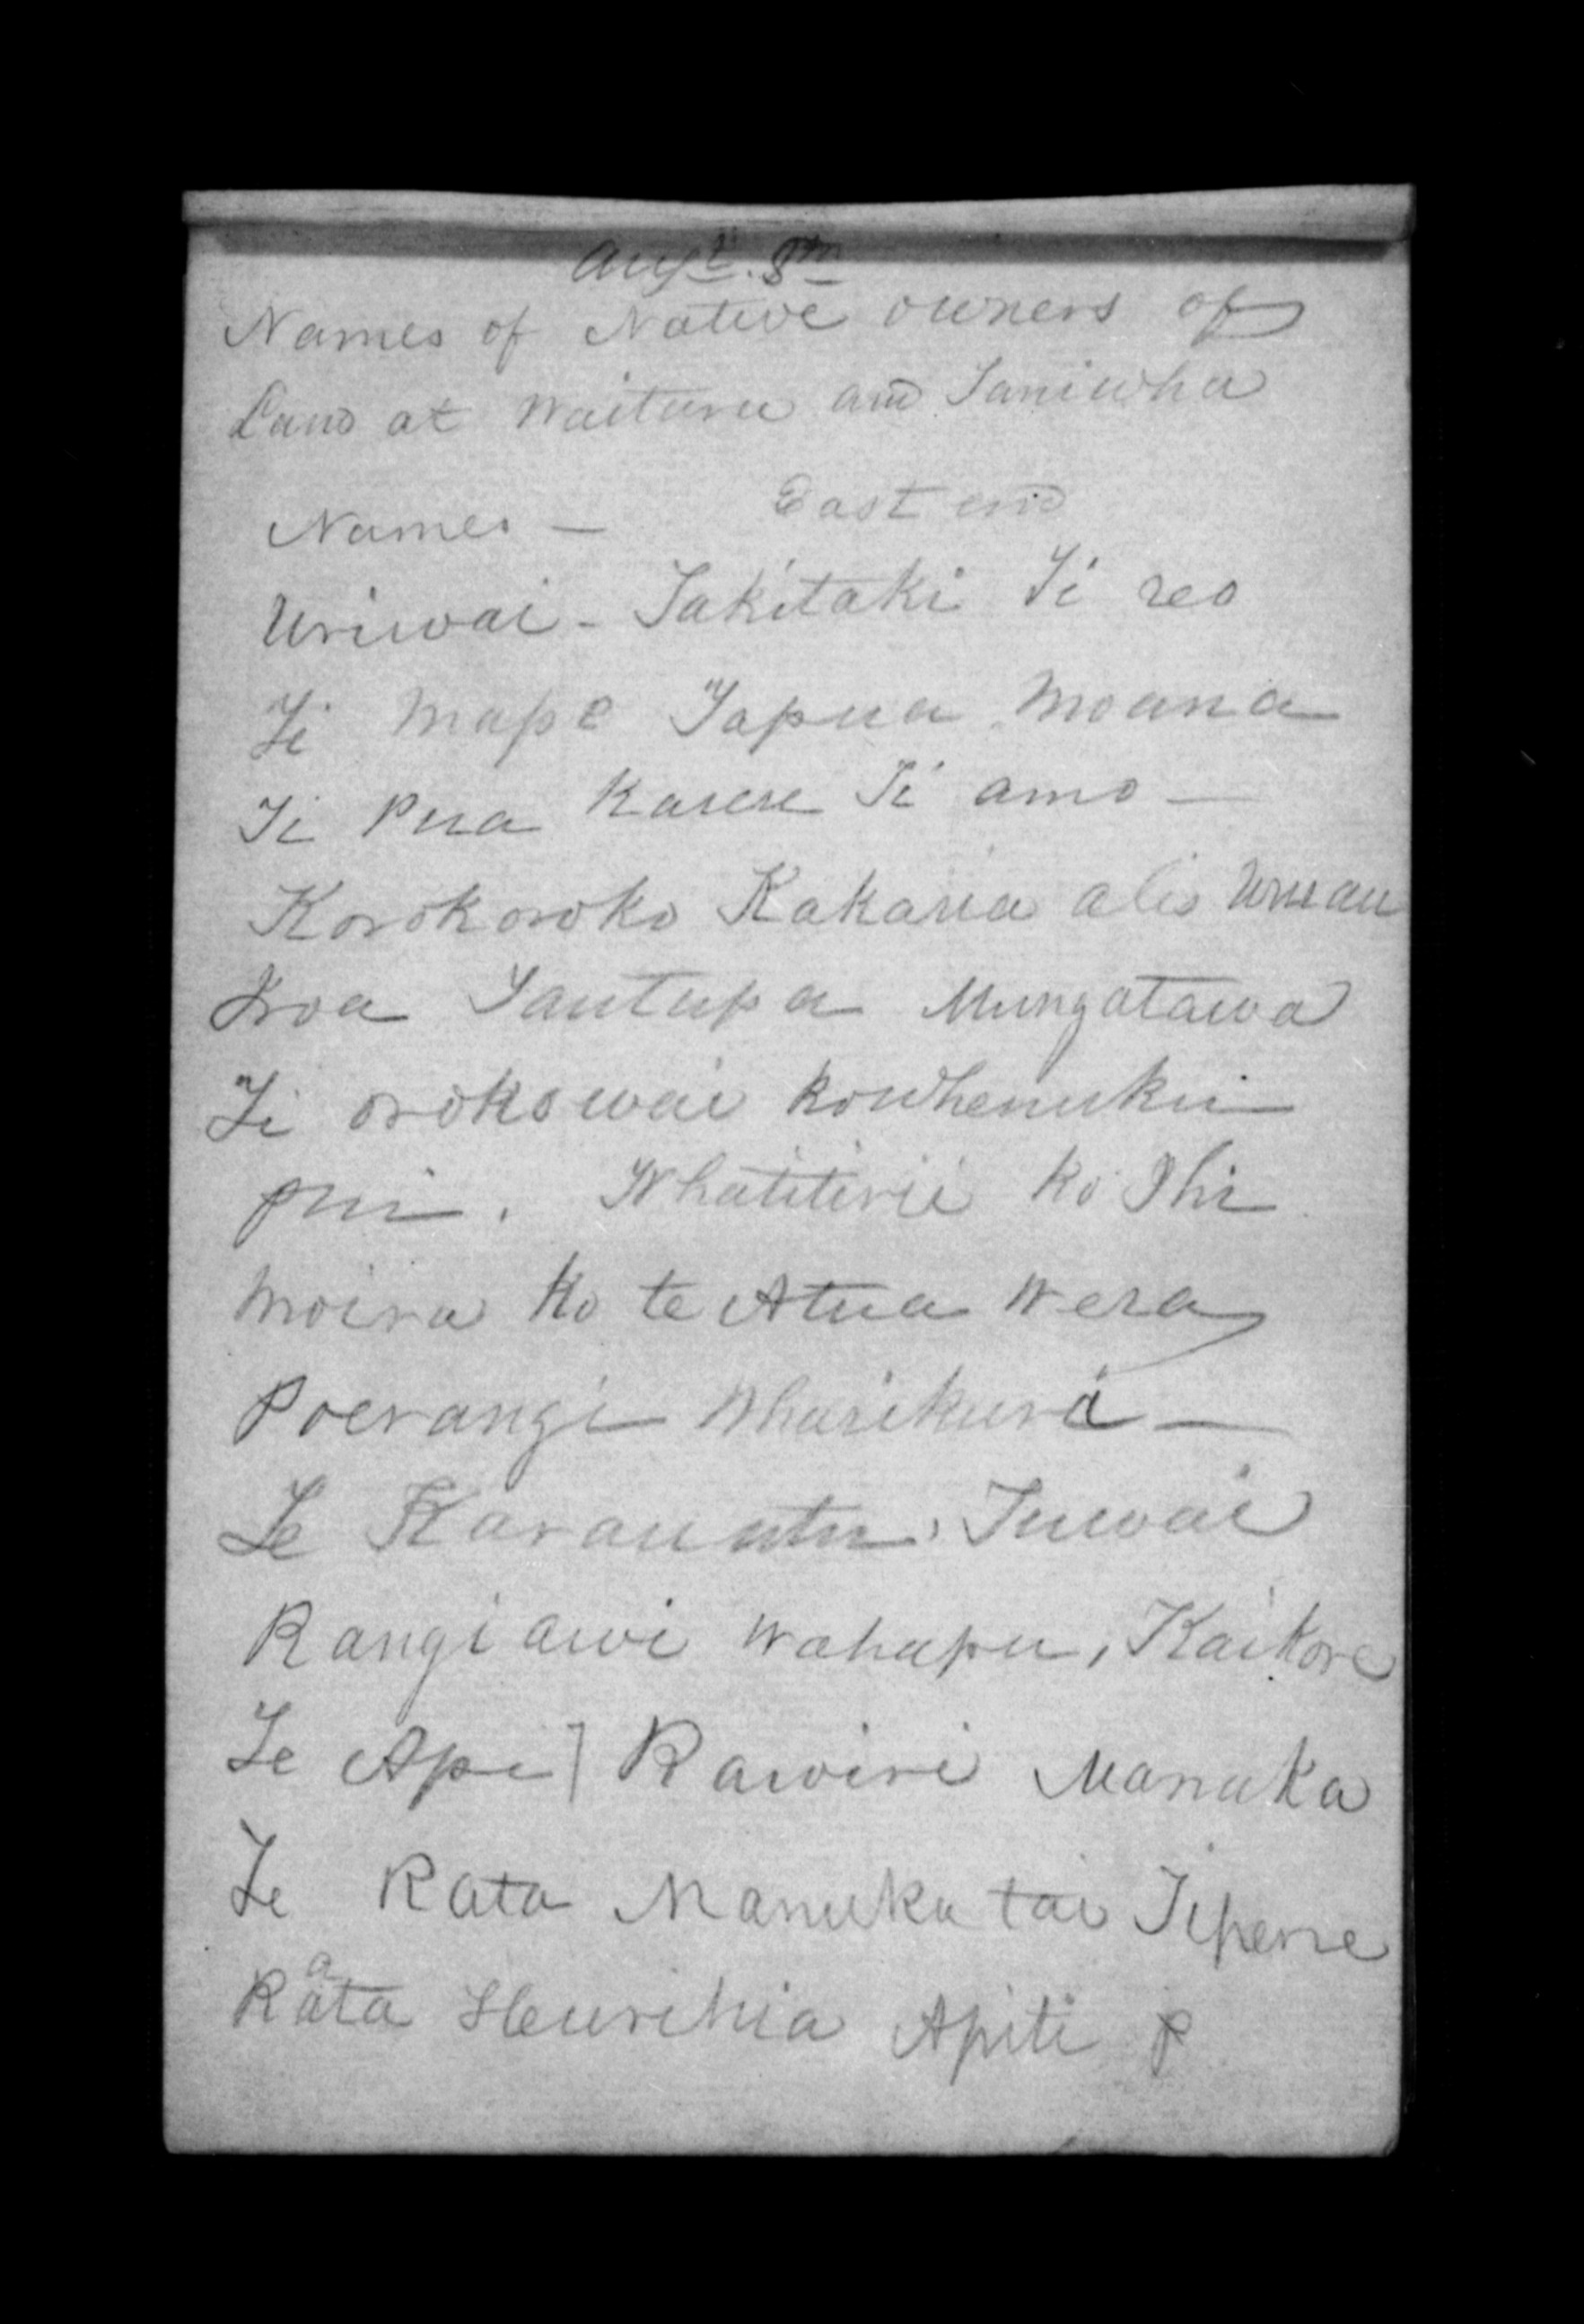 Augt. 8th
Names of Native owners of
Land at Waituru and Taniwha
Names — East end
Uriwai - Takitaki Ti reo
Ti Mape Tapua Moana
Ti Pua Karere Ti amo —
Korokoroko Kakaria alis Uruau
Koa Tautupa Mungatawa
Ti orokowai Kowhenukii
pui. Whatitirii Ko Ihi
Moira Ko te Atua Wera
Poerangi Wharikuri —
Te Karauutu, Tuwai
Rangiawi Wahapu, Kaikore
Te Api] Rawiri Manuka
Te Rata Manuka tai Tipene
Rata Heurihia Apiti P